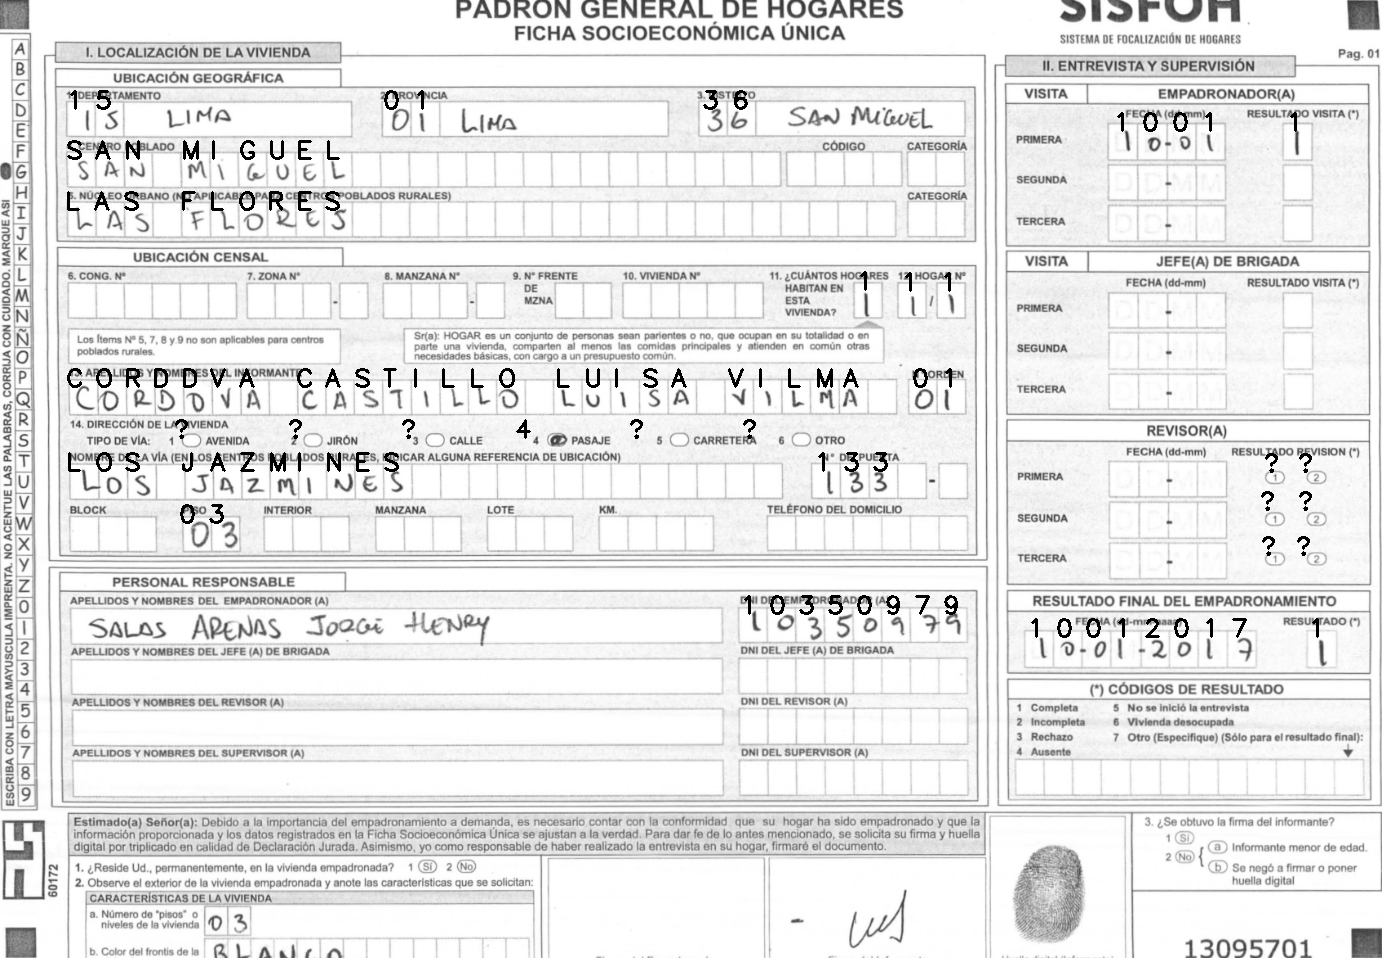 PADRON GENERAL DE HOGARES
FICHA SOCIOECONÓMICA ÚNICA
SISFOH
SISTEMA DE FOCALIZACIÓN DE HOGARES
Pag. 01
A B C D E F G H I J K L M N Ñ O P Q R S T U V W X Y Z 0 1 2 3 4 5 6 7 8 9
ESCRIBA CON LETRA MAYUSCULA IMPRENTA. NO ACENTUE LAS PALABRAS, CORRIJA CON CUIDADO. MARQUE ASI
I. LOCALIZACIÓN DE LA VIVIENDA
UBICACIÓN GEOGRÁFICA
1. DEPARTAMENTO 2. PROVINCIA 3. DISTRITO
15 01 36
15 LIMA 01 LIMA 36 SAN MIGUEL
SAN MIGUEL
CENTRO POBLADO CÓDIGO CATEGORÍA
SAN MIGUEL
LAS FLORES
5. NÚCLEO URBANO (NO APLICABLE PARA CENTROS POBLADOS RURALES) CATEGORÍA
LAS FLORES
UBICACIÓN CENSAL
6. CONG. Nº 7. ZONA Nº 8. MANZANA Nº 9. Nº FRENTE DE MZNA 10. VIVIENDA Nº 11. ¿CUÁNTOS HOGARES HABITAN EN ESTA VIVIENDA? 12. HOGAR Nº
1 1 1
1 1 / 1
Los Ítems Nº 5, 7, 8 y 9 no son aplicables para centros
poblados rurales.
Sr(a): HOGAR es un conjunto de personas sean parientes o no, que ocupan en su totalidad o en
parte una vivienda, comparten al menos las comidas principales y atienden en común otras
necesidades básicas, con cargo a un presupuesto común.
CORDDVA CASTILLO LUISA VILMA 01
13. APELLIDOS Y NOMBRES DEL INFORMANTE Nº ORDEN
CORDOVA CASTILLO LUISA VILMA 01
14. DIRECCIÓN DE LA VIVIENDA
? ? ? 4 ? ?
TIPO DE VÍA: 1 AVENIDA 2 JIRÓN 3 CALLE 4 PASAJE 5 CARRETERA 6 OTRO
LOS JAZMINES 133
NOMBRE DE LA VÍA (EN LOS CENTROS POBLADOS RURALES, INDICAR ALGUNA REFERENCIA DE UBICACIÓN) Nº DE PUERTA
LOS JAZMINES 133 -
03
BLOCK PISO INTERIOR MANZANA LOTE KM. TELÉFONO DEL DOMICILIO
03
PERSONAL RESPONSABLE
10350979
APELLIDOS Y NOMBRES DEL EMPADRONADOR (A) DNI DEL EMPADRONADOR (A)
SALAS ARENAS JORGE HENRY 10350979
APELLIDOS Y NOMBRES DEL JEFE (A) DE BRIGADA DNI DEL JEFE (A) DE BRIGADA
APELLIDOS Y NOMBRES DEL REVISOR (A) DNI DEL REVISOR (A)
APELLIDOS Y NOMBRES DEL SUPERVISOR (A) DNI DEL SUPERVISOR (A)
II. ENTREVISTA Y SUPERVISIÓN
VISITA EMPADRONADOR(A)
FECHA (dd-mm) RESULTADO VISITA (*)
1001 1
PRIMERA 10-01 1
SEGUNDA DD-MM
TERCERA DD-MM
VISITA JEFE(A) DE BRIGADA
FECHA (dd-mm) RESULTADO VISITA (*)
PRIMERA DD-MM
SEGUNDA DD-MM
TERCERA DD-MM
REVISOR(A)
FECHA (dd-mm) RESULTADO REVISION (*)
? ?
PRIMERA DD-MM 1 2
? ?
SEGUNDA DD-MM 1 2
? ?
TERCERA DD-MM 1 2
RESULTADO FINAL DEL EMPADRONAMIENTO
FECHA (dd-mm-aaaa) RESULTADO (*)
10012017 1
10-01-2017 1
(*) CÓDIGOS DE RESULTADO
1 Completa 5 No se inició la entrevista
2 Incompleta 6 Vivienda desocupada
3 Rechazo 7 Otro (Especifique) (Sólo para el resultado final):
4 Ausente
Estimado(a) Señor(a): Debido a la importancia del empadronamiento a demanda, es necesario contar con la conformidad que su hogar ha sido empadronado y que la
información proporcionada y los datos registrados en la Ficha Socioeconómica Única se ajustan a la verdad. Para dar fe de lo antes mencionado, se solicita su firma y huella
digital por triplicado en calidad de Declaración Jurada. Asimismo, yo como responsable de haber realizado la entrevista en su hogar, firmaré el documento.
60172
1. ¿Reside Ud., permanentemente, en la vivienda empadronada? 1 Sí 2 No
2. Observe el exterior de la vivienda empadronada y anote las características que se solicitan:
CARACTERÍSTICAS DE LA VIVIENDA
a. Número de "pisos" o
niveles de la vivienda 03
b. Color del frontis de la BLANCO
3. ¿Se obtuvo la firma del informante?
1 Sí
2 No { a Informante menor de edad.
b Se negó a firmar o poner
huella digital
13095701